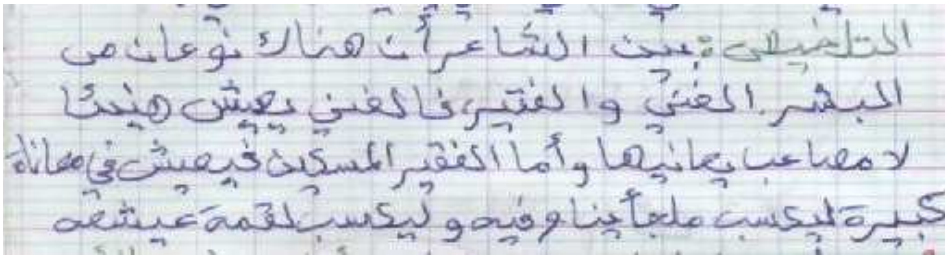 التلخيص: يبين الشاعر أن هناك نوعان من
البشر الغني والفقير، فالغني يعيش هنيئا
لا مصاعب يعانيها وأما الفقير المسكين فيعيش في معاناة
كبيرة ليكسب ملجأ ينام فيه و ليكسب لقمة عيشه